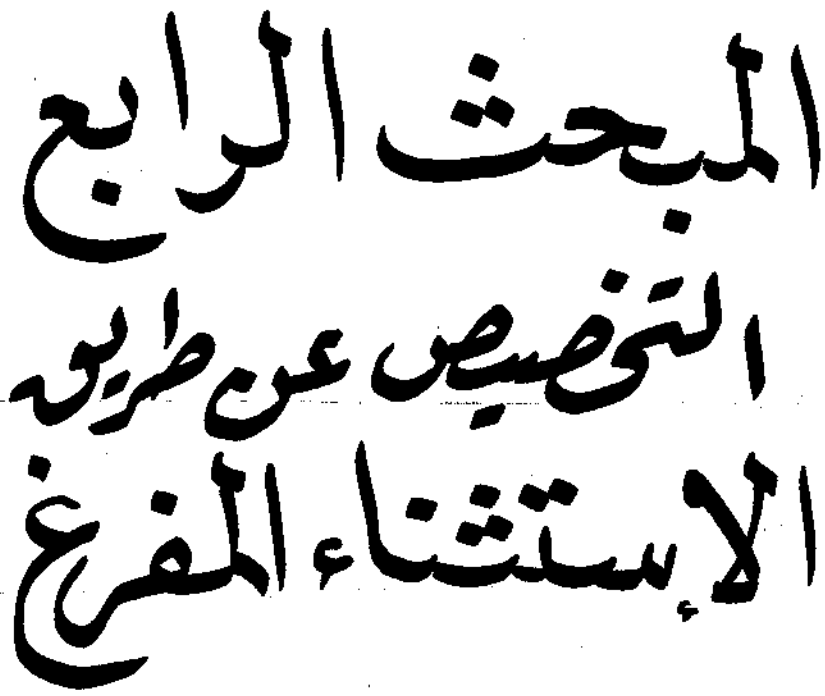 المبحث الرابع
التخصيص عن طريق
الإستثناء المفرغ